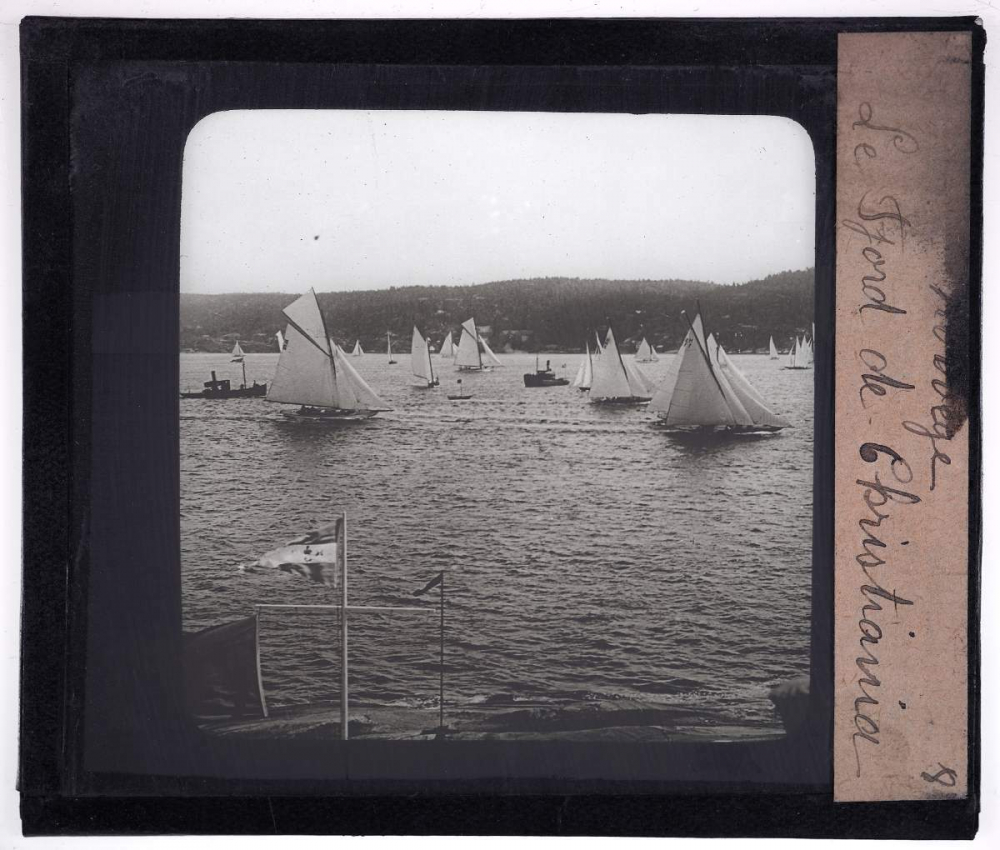 Norvège
Le Fjord de Christiania
8